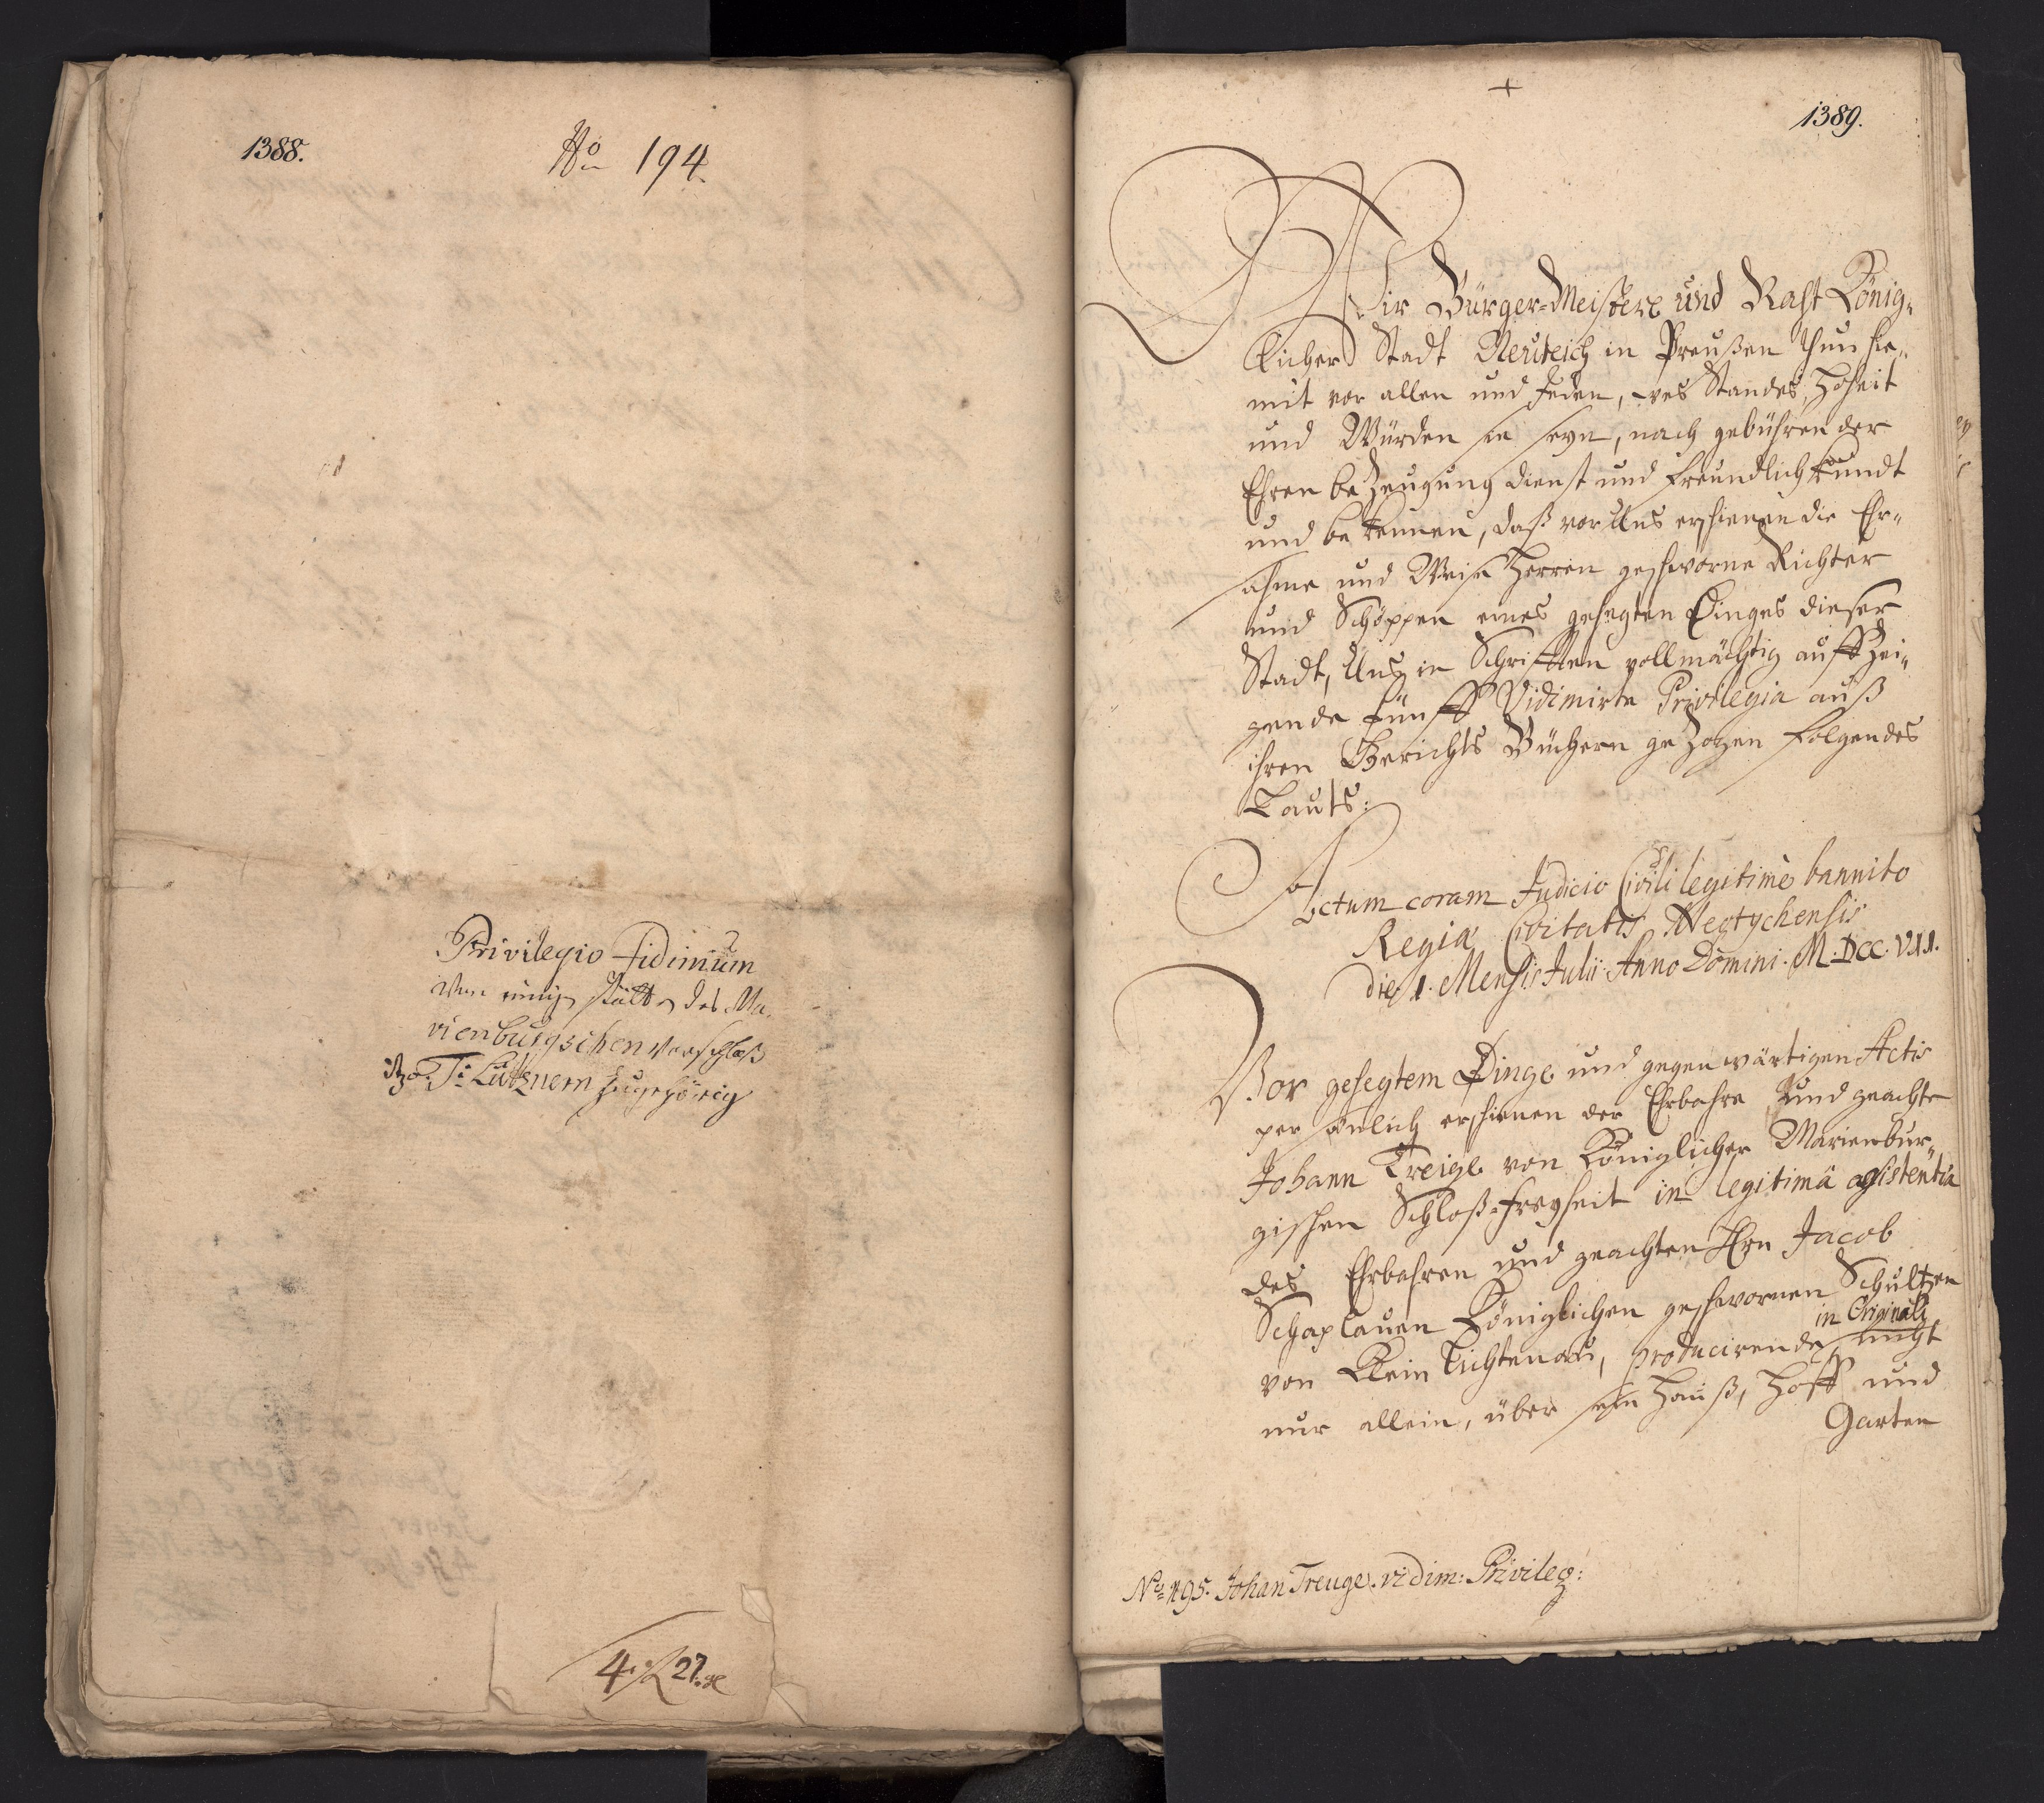 1388.
No 194
Privilegio Fidimium
Von einig stätt des Ma,
rienburgschen Vorschloß
T: Lütznern zugehörig
4 27 gl
+
1389.
Wir Bürger-Meistere und Raht König,
licher Stadt Neuteich in Preußen thun hie,
mit vor allen und Jeden, wes Standes, Hoheit
und Würden sie seyn, nach gebühren der
Ehren bezeugung dienst und freundlich kundt
und bekennen, daß vor Uns erschienen die Ehr,
sahme und Weise Herren geschworne Richter
und Schöppen eines gehegten Dinges dieser
Stadt, Uns in Schrifften vollmächtig auffzei,
gende fünff Vidimirte Privilegia auß
ihren Gerichts Büchern gezogen folgendes
Lauts:
Actum coram Judicio Civili legitimè bannito
Regiæ Civitatis Neotychensis
die 1. Mensis Julii Anno Domini. M.DCC.VII.
Vor gehegtem Dinge und gegenwärtigen Actis
persönlich erschienen der Ehrbahre und geachte
Johann Treige von Königlicher Marienbur,
gischen Schloß-freyheit in legitimâ assistentia
des Ehrbahren und geachten Hrn Jacob
Schaplauen Königlichen geschwornen Schultzen
in Originali
von Klein Lichtenau, producirende nicht
nur allein, über sein Hauß, Hoff und
Garten
No 195. Johan Treuge. vidim: Privileg: